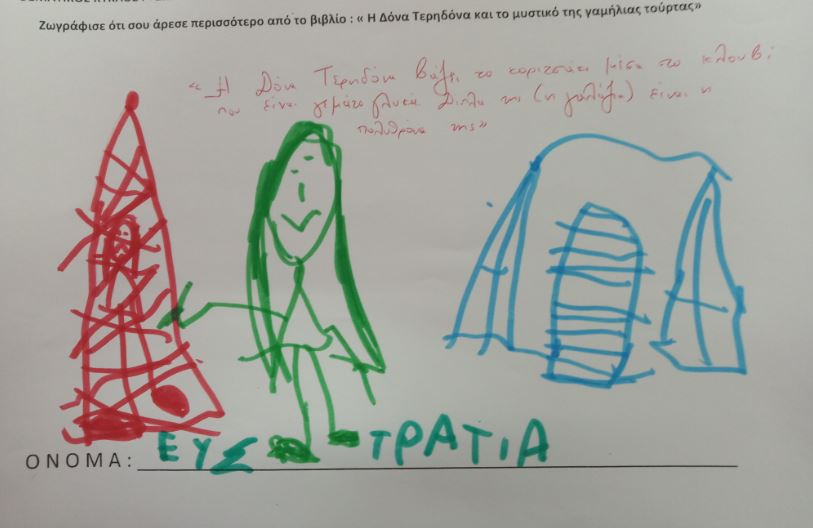 Ζωγράφισε ότι σου άρεσε περισσότερο από το βιβλίο : « Η Δόνα Τερηδόνα και το μυστικό της γαμήλιας τούρτας»
«Η Δόνα Τερηδόνα βάζει το κοριτσάκι μέσα στο κλουβί
που είναι γεμάτο γλυκά. Δίπλα της (η γαλάζια) είναι η
πολυθρόνα της»
ΕΥΣΤΡΑΤΙΑ
ΟΝΟΜΑ: